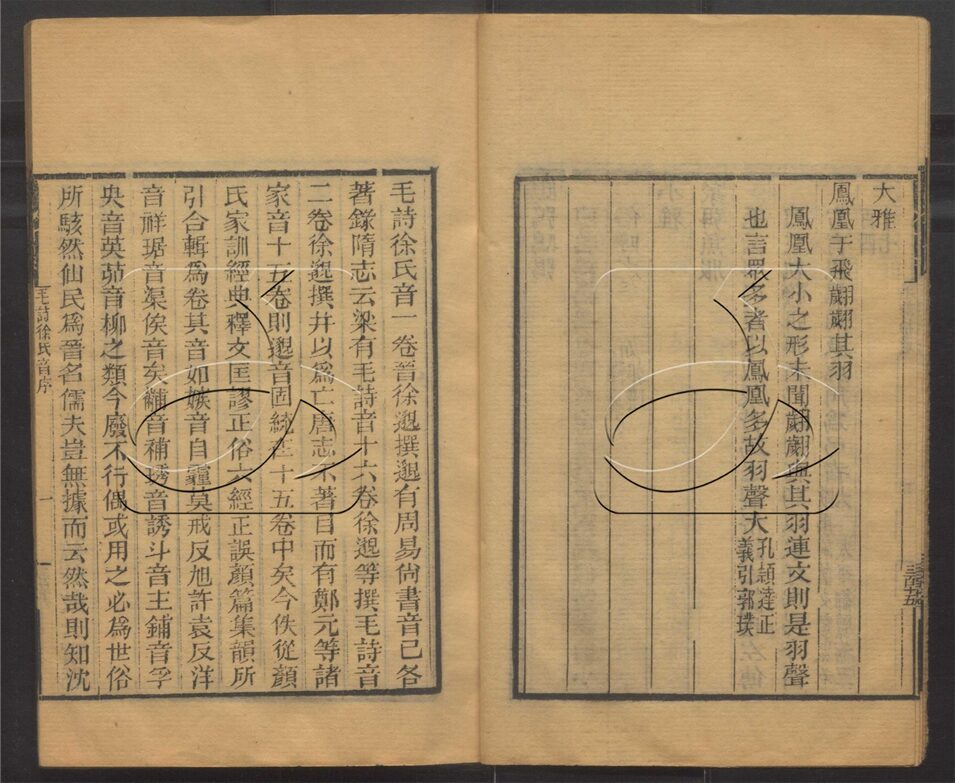 大雅
鳳凰于飛翽翽其羽
鳳凰大小之形未聞翽翽與其羽連文則是羽聲
也言眾多者以鳳凰多故羽聲大孔穎達正義引郭璞
三百五
毛詩徐氏音一卷晉徐邈撰邈有周易尚書音已各
著錄隋志云梁有毛詩音十六卷徐邈等撰毛詩音
二卷徐邈撰并以為亡唐志不著目而有鄭元等諸
家音十五卷則邈音固統在十五卷中矣今佚從顏
氏家訓經典釋文匡謬正俗六經正誤顏篇集韻所
引合輯為卷其音如嫉音自霾莫戒反旭許袁反洋
音祥琚音渠俟音矣黼音補琇音誘斗音主鋪音孚
央音英茆音柳之類今廢不行偶或用之必為世俗
所駭然仙民為晉名儒夫豈無據而云然哉則知沈
毛詩徐氏音序
一